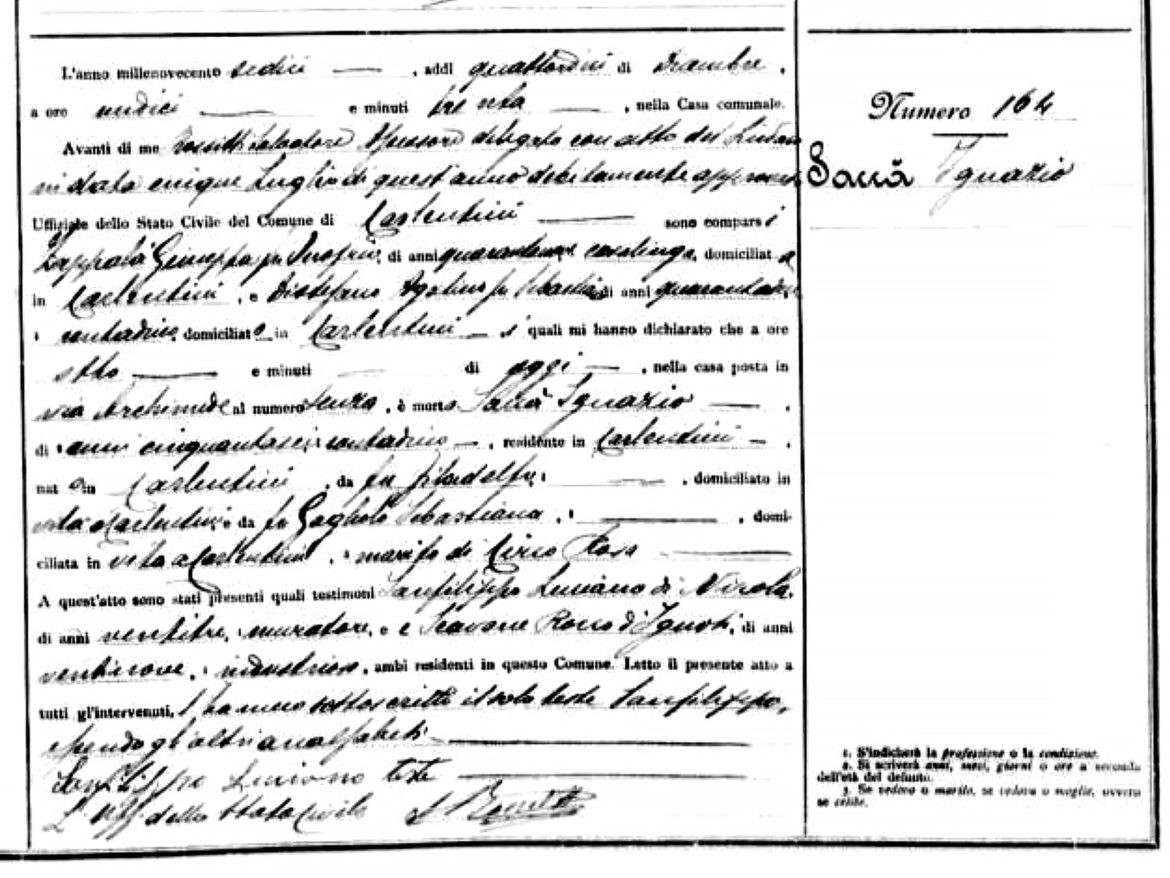 L'anno millenovecento sedici — , addì quattordici di Dicembre ,
a ore undici — e minuti trenta — , nella Casa comunale.
Avanti di me Salvatore Assessore delegato con atto del Sindaco
in data cinque Luglio di quest'anno debitamente approvato
Uffiziale dello Stato Civile del Comune di Carlentini — sono comparsi
Zappalà Giuseppa fu Onofrio, di anni casalinga, domiciliata
in Carlentini , e Distefano Agatino fu Sebastiano di anni
contadino domiciliato in Carlentini — i quali mi hanno dichiarato che a ore
otto — e minuti — di oggi — , nella casa posta in
via Archimede al numero senza , è morto Saccà Ignazio — ,
di anni cinquantasei contadino — , residente in Carlentini — ,
nato in Carlentini , da fu Filadelfo, — , domiciliato in
vita a Carlentini e da fu Sebastiana , — , domi-
ciliata in vita a Carlentini , marito di Cirso Rosa —
A quest'atto sono stati presenti quali testimoni Sanfilippo Luciano di Nicola,
di anni ventitre, muratore, e Rosso d'Ignoti, di anni
ventinove, industrioso, ambi residenti in questo Comune. Letto il presente atto a
tutti gl'intervenuti, l'ha meco sottoscritto il solo teste Sanfilippo,
essendo gli altri analfabeti —
Sanfilippo Luciano teste —
L'Uff. dello Stato Civile
Numero 164
Saccà Ignazio
1. S'indicherà la professione o la condizione.
2. Si scriverà anni, mesi, giorni o ore a seconda
dell'età del defunto.
3. Se vedovo o marito, se vedova o moglie, ovvero
se celibe.